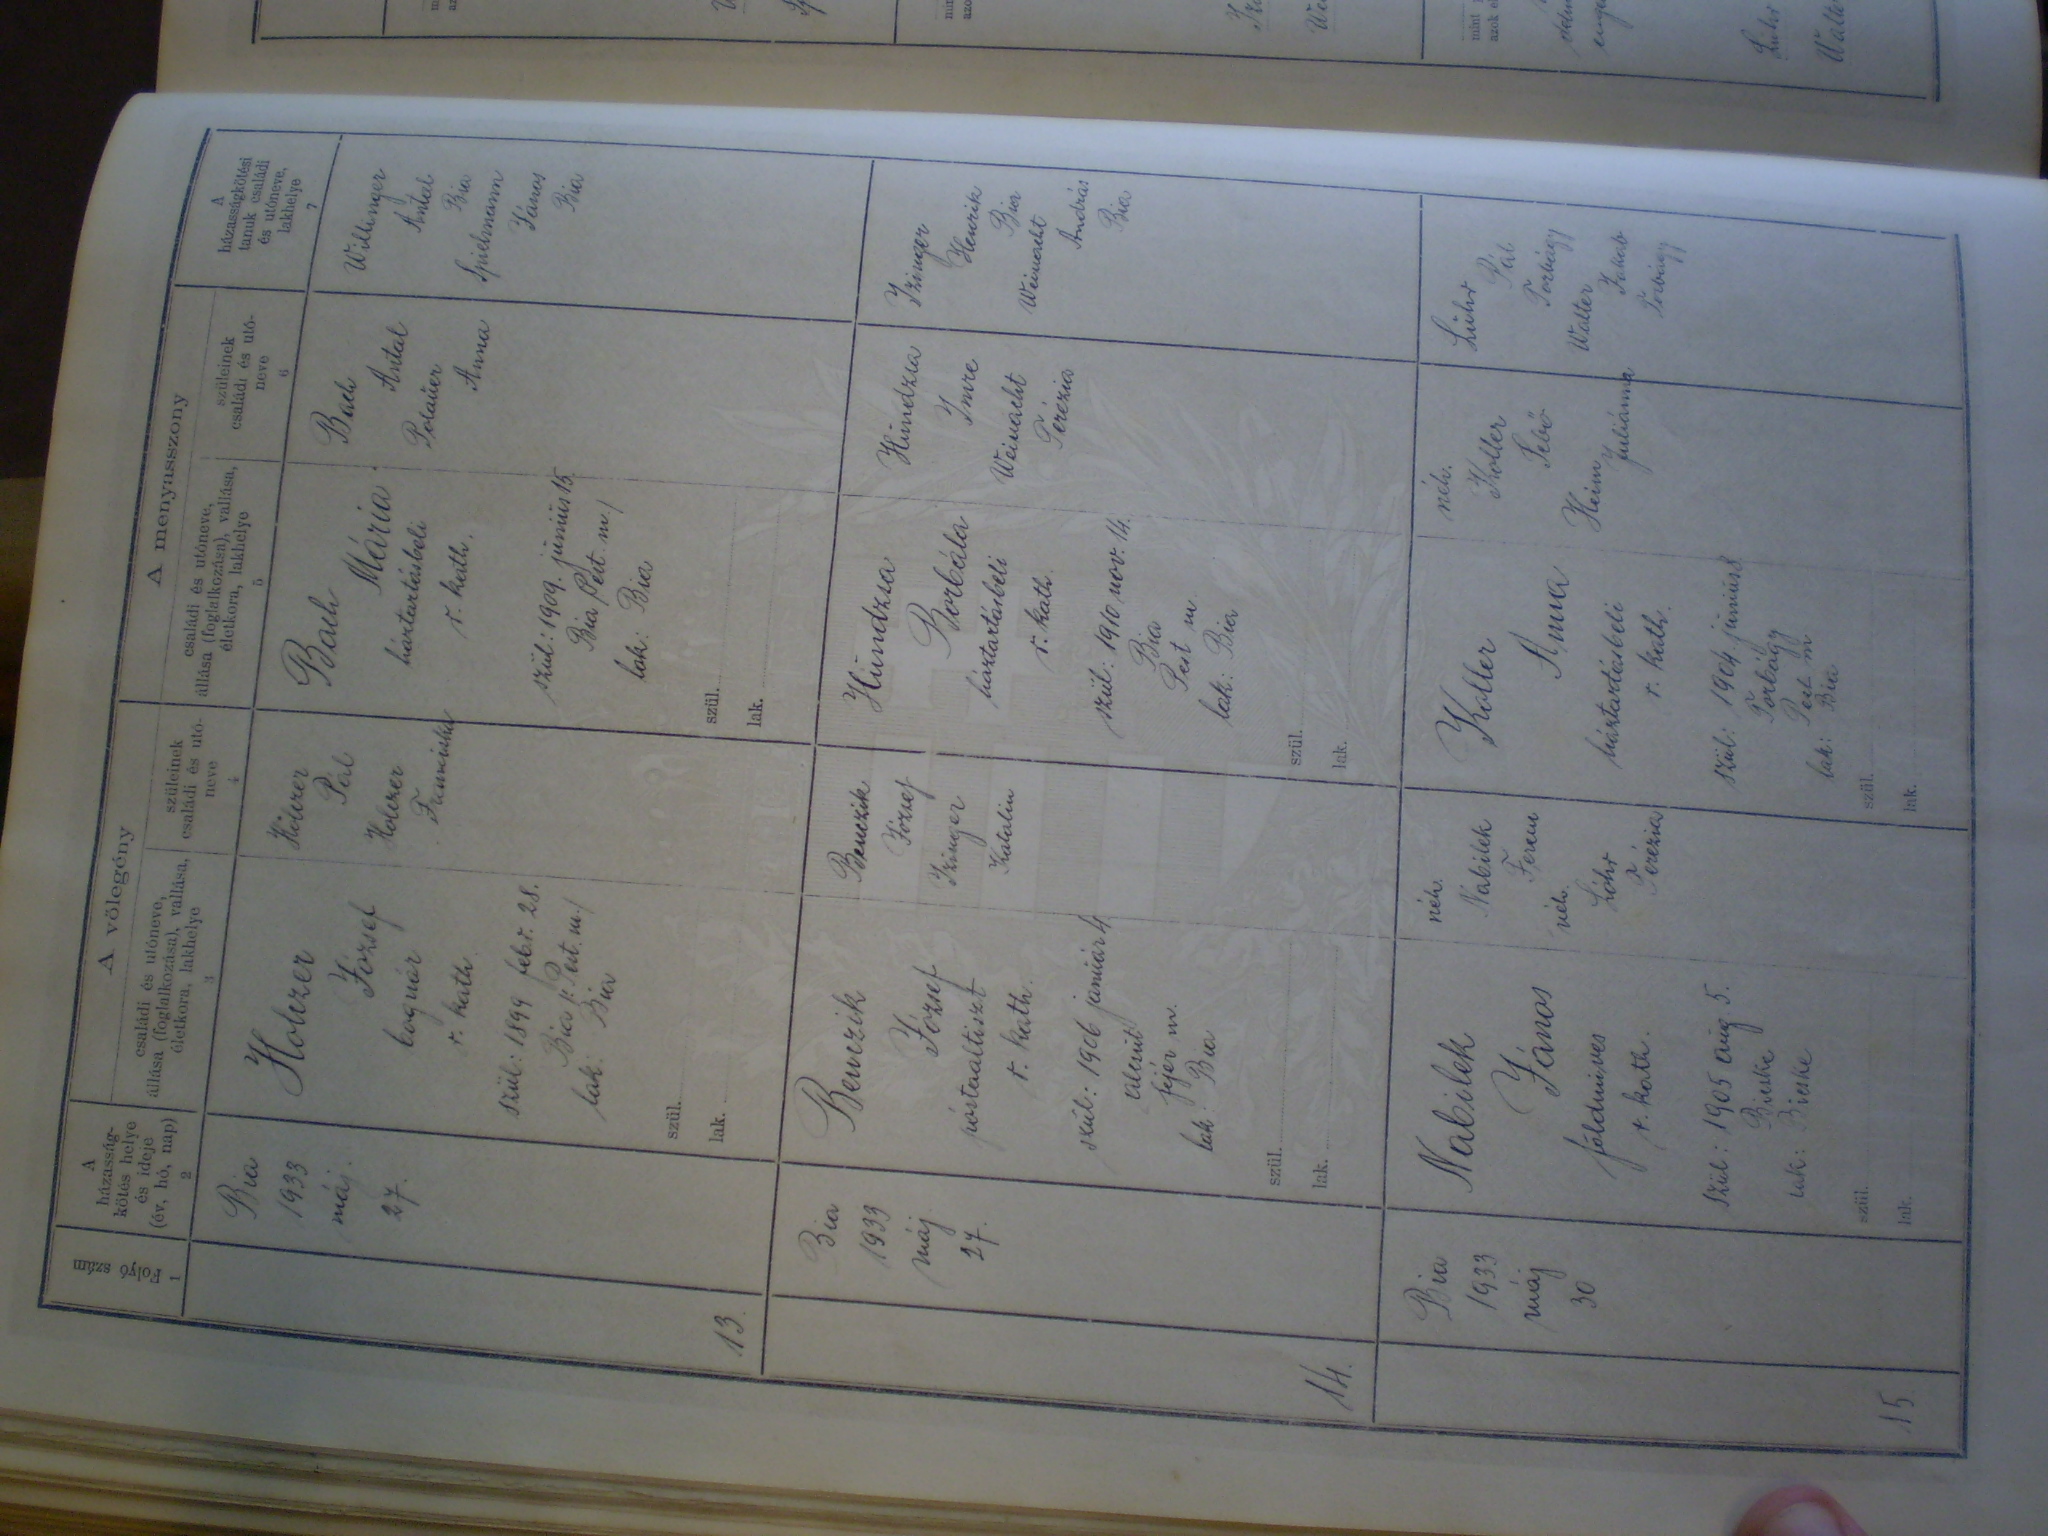 A
házasság-
kötés helye
és ideje
(év, hó, nap)
2
Folyó szám
1
A vőlegény
családi és utóneve,
állása (foglalkozása), vallása,
életkora, lakhelye
3
szüleinek
családi és utó-
neve
4
A menyasszony
családi és utóneve,
állása (foglalkozása), vallása,
életkora, lakhelye
5
szüleinek
családi és utó-
neve
6
A
házasságkötési
tanuk családi
és utóneve,
lakhelye
7
13.
Bia
1933
máj.
27.
Holczer
József
bognár
r. kath.
szül: 1899 febr. 28.
Bia /Pest. m./
lak: Bia
szül.
lak.
Holczer
Pál
Holczer
Franciska
Bach
Mária
háztartásbeli
r. kath.
szül: 1909. június 15.
Bia /Pest. m./
lak: Bia
szül.
lak.
Bach
Antal
Anna
Willinger
Antal
Bia
Spielmann
János
Bia
14.
Bia
1933
máj.
27.
Benczik
József
póstaaltiszt
r. kath.
szül: 1906 január 4.
Alcsút
fejér m.
lak: Bia
szül.
lak.
Benczik
József
Izinger
Katalin
Hündzsa
Borbála
háztartásbeli
r. kath.
szül: 1910 nov. 14.
Bia
Pest m.
lak: Bia
szül.
lak.
Hündzsa
Imre
Weinacht
Terézia
Izinger
Henrik
Bia
Weinacht
András
Bia
15
Bia
1933
máj
30
Nabilek
János
földmíves
r. kath.
szül: 1905 aug. 5.
Bicske
lak: Bicske
szül.
lak.
néh.
Nabilek
Ferenc
néh.
Löhr
Terézia
Koller
Anna
háztartásbeli
r. kath.
szül: 1904 június 8
Torbágy
Pest m
lak: Bia
szül.
lak.
néh.
Koller
Sebő
Heim
Juliánna
Lühr
Pál
Torbágy
Walter
Jakab
Torbágy